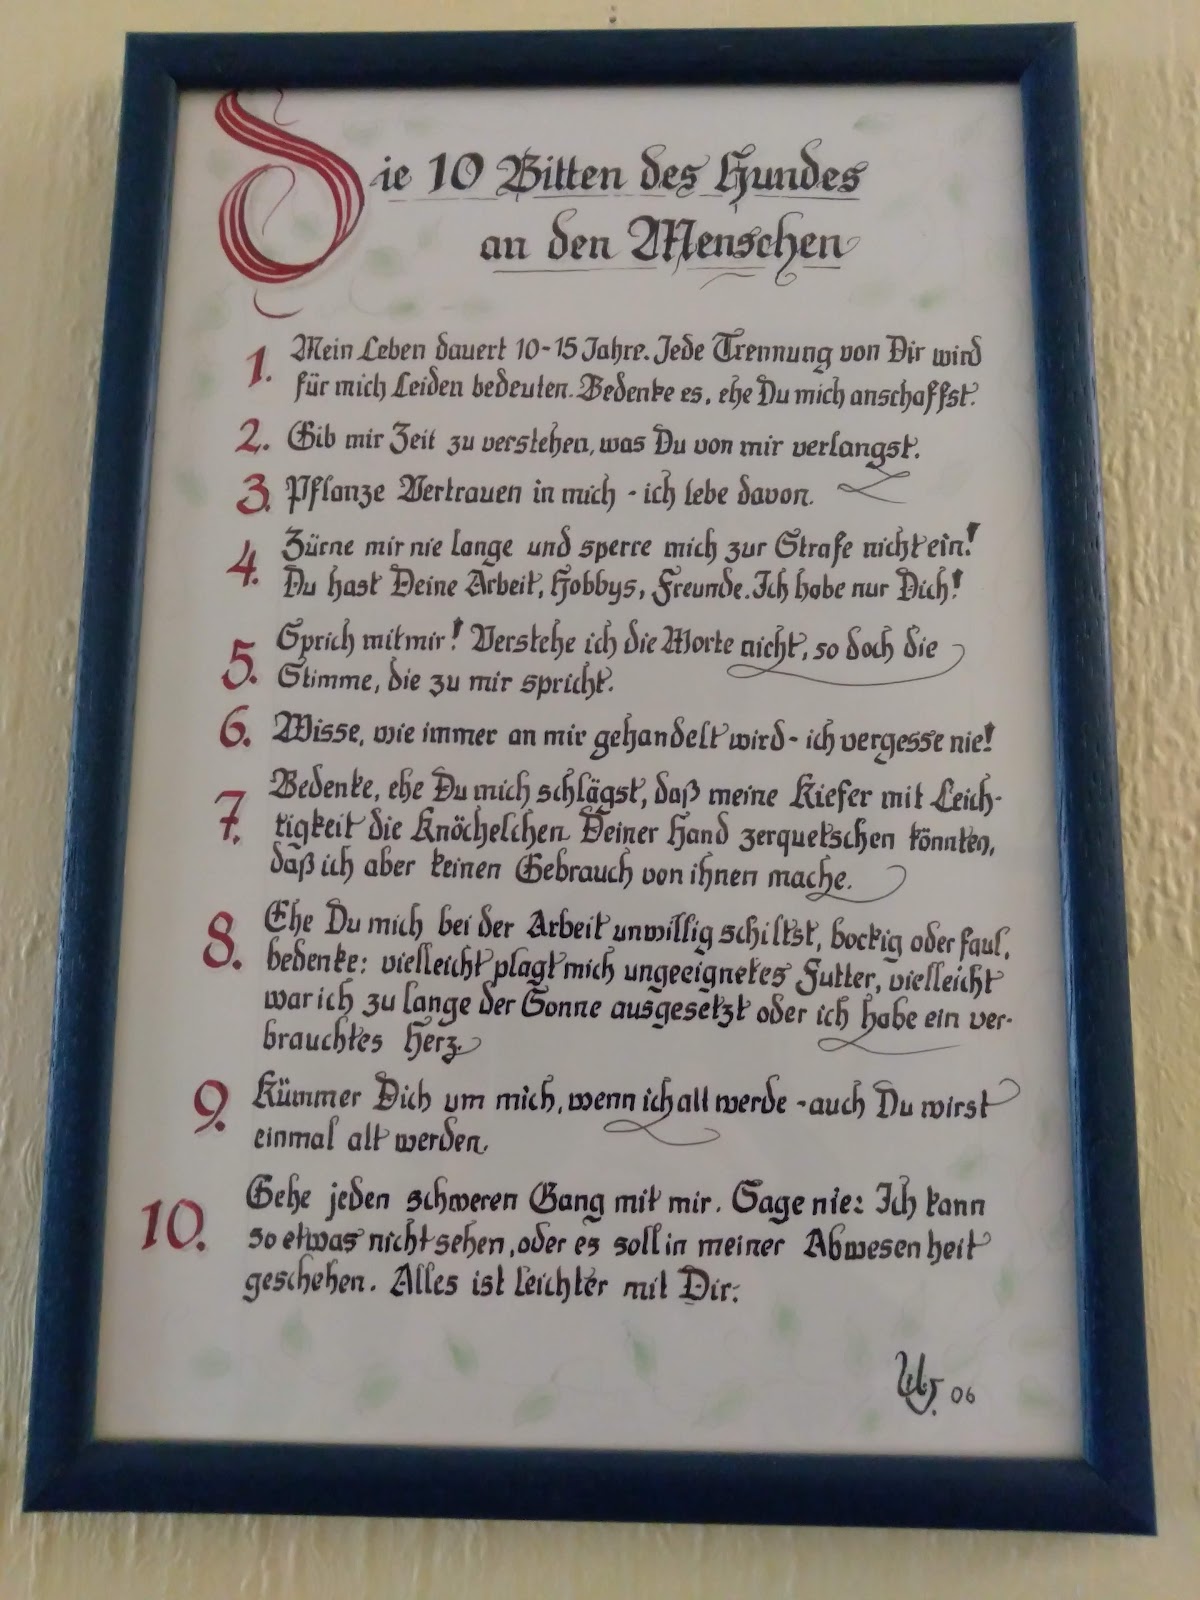 Die 10 Bitten des Hundes
an den Menschen
1. Mein Leben dauert 10-15 Jahre. Jede Trennung von Dir wird
für mich Leiden bedeuten. Bedenke es, ehe Du mich anschaffst.
2. Gib mir Zeit zu verstehen, was Du von mir verlangst.
3. Pflanze Vertrauen in mich - ich lebe davon.
4. Zürne mir nie lange und sperre mich zur Strafe nicht ein!
Du hast Deine Arbeit, Hobbys, Freunde. Ich habe nur Dich!
5. Sprich mit mir! Verstehe ich die Worte nicht, so doch die
Stimme, die zu mir spricht.
6. Wisse, wie immer an mir gehandelt wird - ich vergesse nie!
7. Bedenke, ehe Du mich schlägst, daß meine Kiefer mit Leich-
tigkeit die Knöchelchen Deiner Hand zerquetschen könnten,
daß ich aber keinen Gebrauch von ihnen mache.
8. Ehe Du mich bei der Arbeit unwillig schiltst, bockig oder faul,
bedenke: vielleicht plagt mich ungeeignetes Futter, vielleicht
war ich zu lange der Sonne ausgesetzt oder ich habe ein ver-
brauchtes Herz.
9. Kümmer Dich um mich, wenn ich alt werde - auch Du wirst
einmal alt werden.
10. Gehe jeden schweren Gang mit mir. Sage nie: Ich kann
so etwas nicht sehen, oder es soll in meiner Abwesenheit
geschehen. Alles ist leichter mit Dir.
06